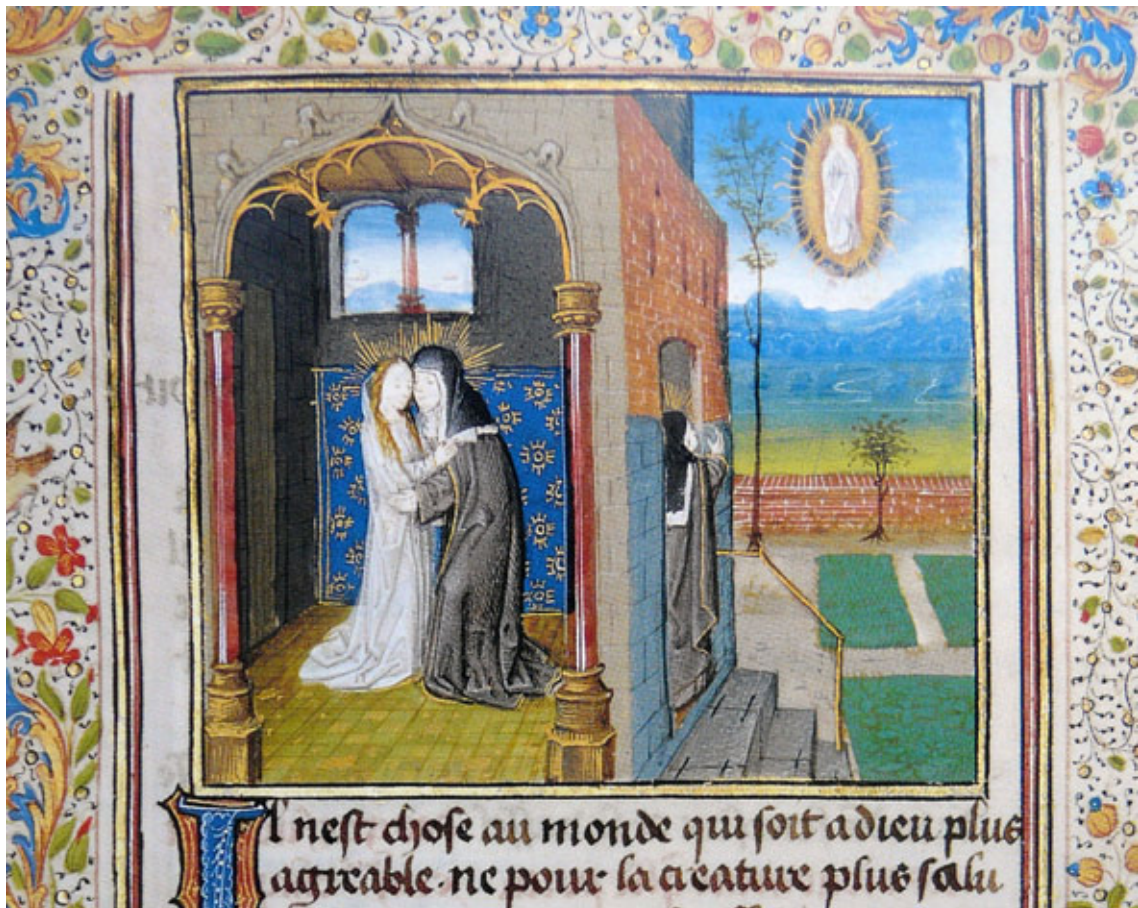 Il nest chose au monde qui soit a dieu plus
agreable. ne pour la creature plus salu